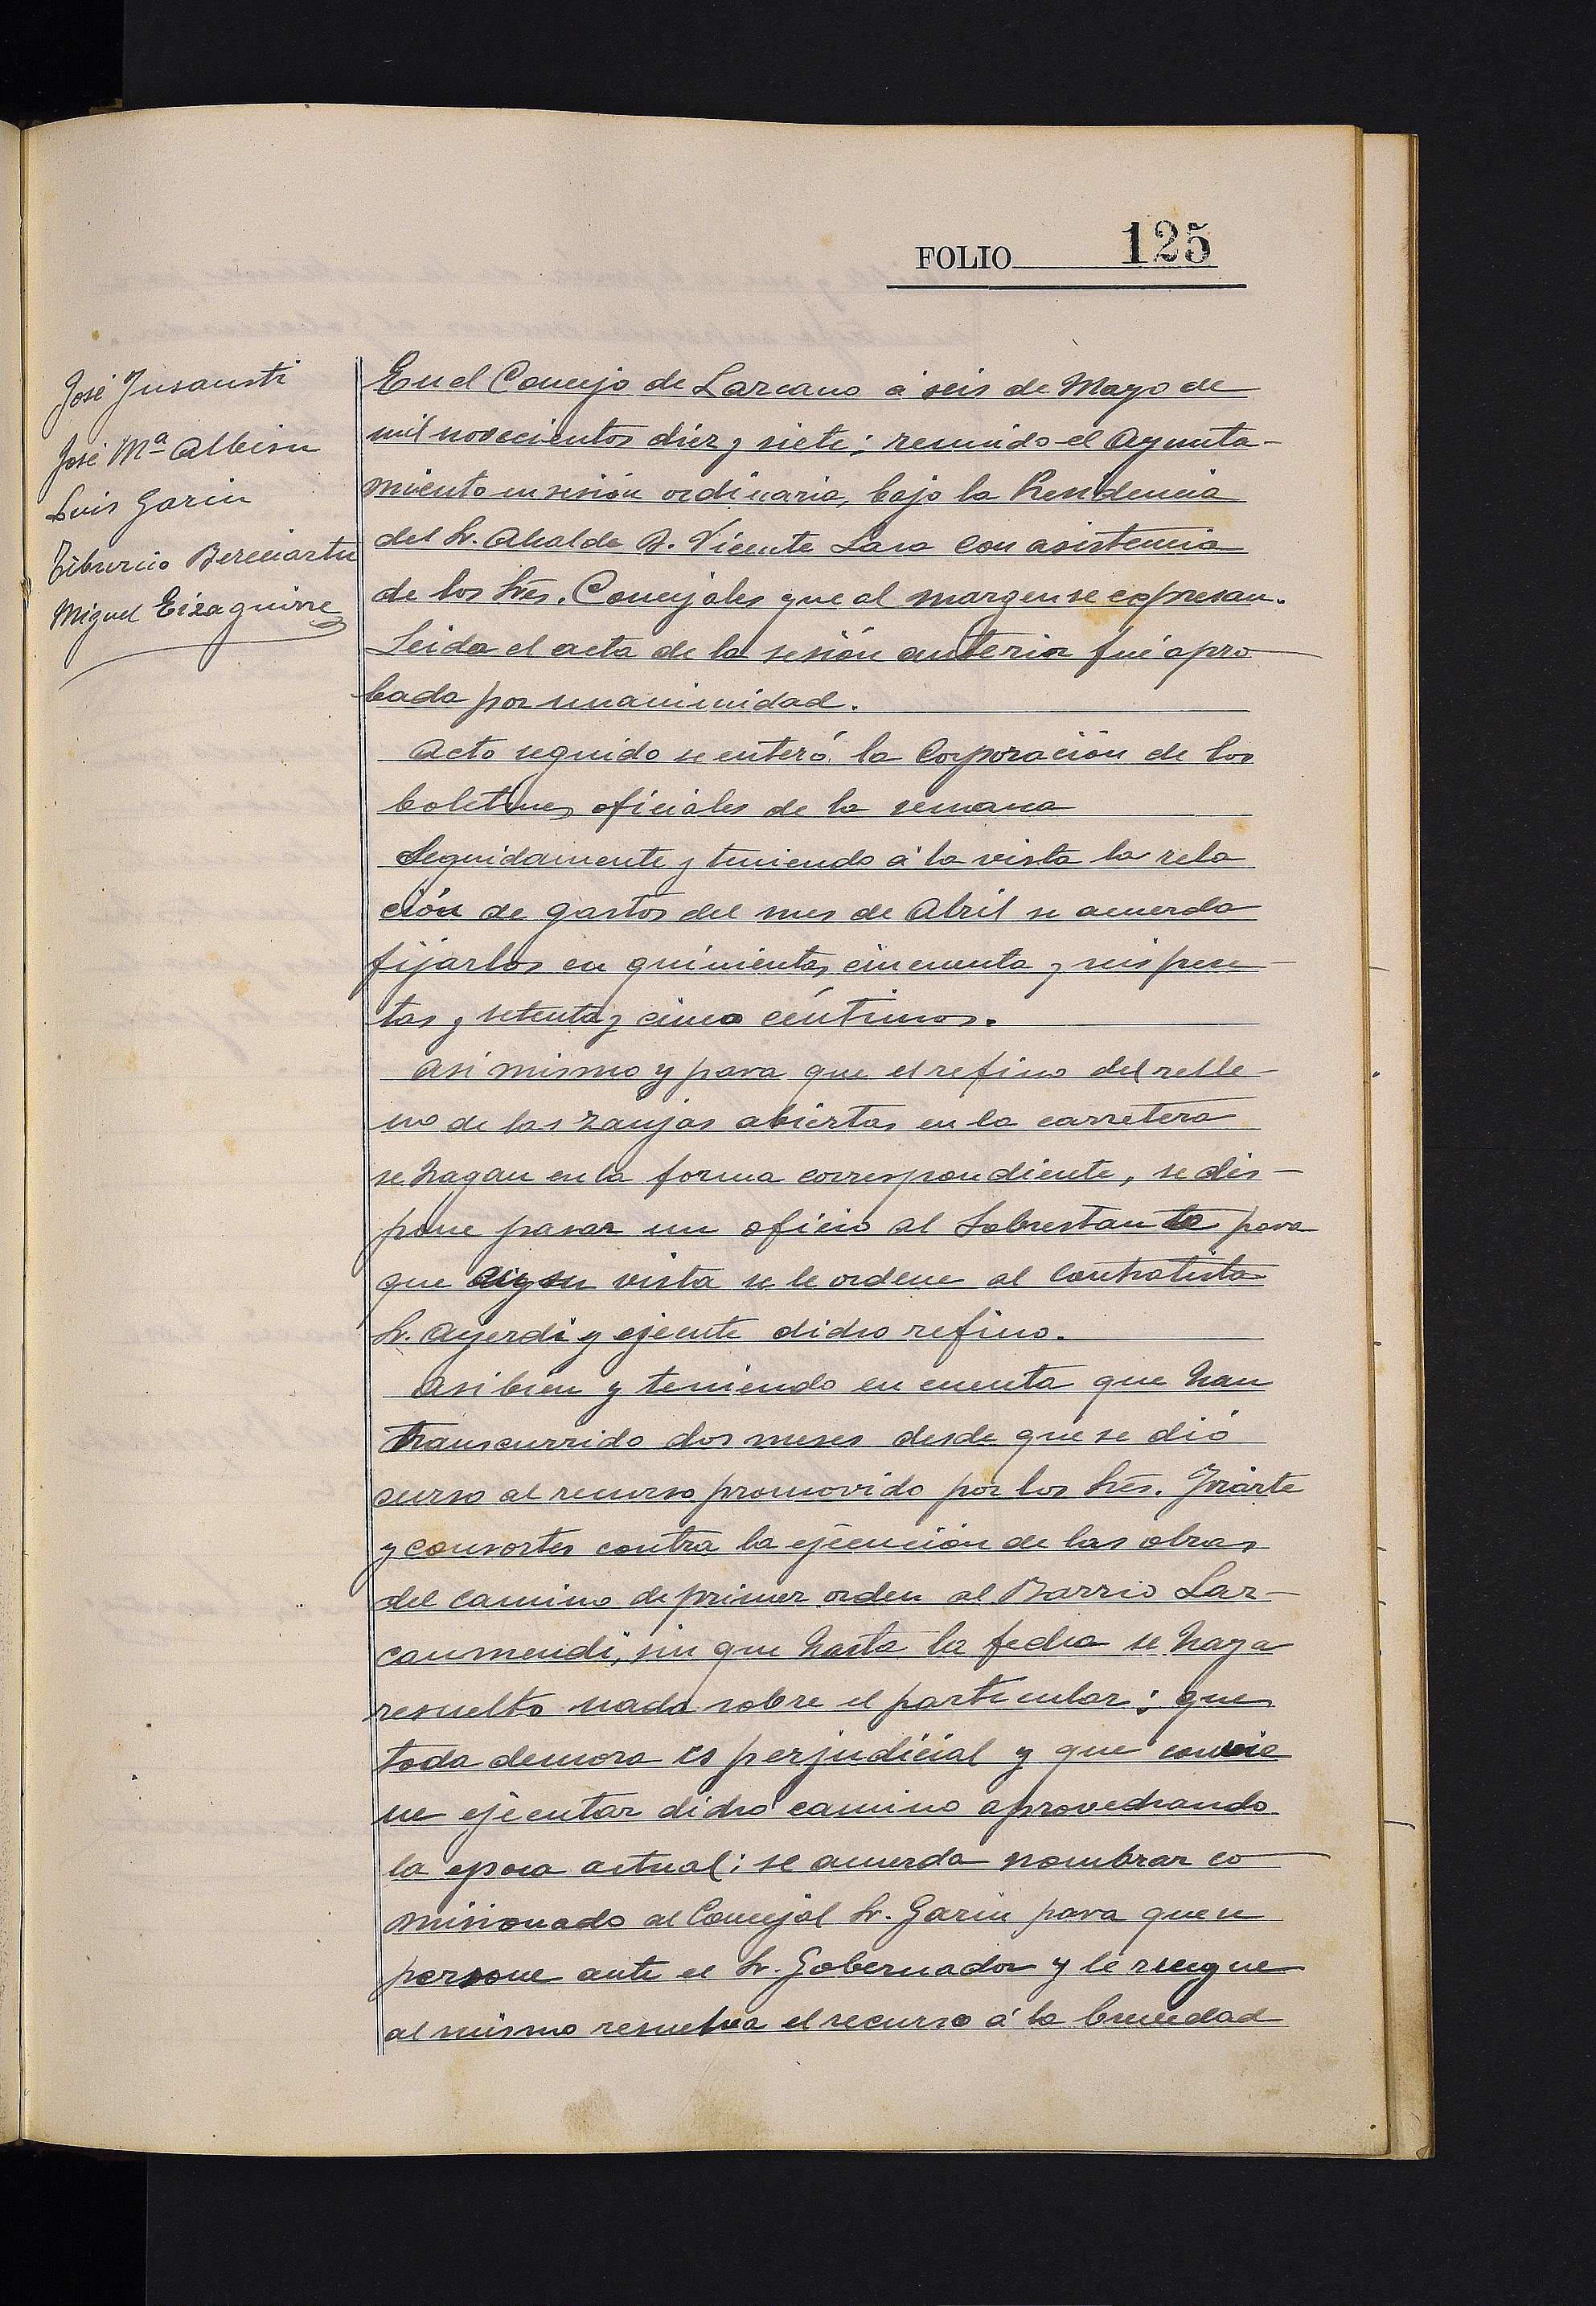 FOLIO 125
José Insausti
José Mª Albisu
Luis Garin
Tiburcio Bereciartu
Miguel Eizaguirre
En el Concejo de Lazcano á seis de Mayo de
mil novecientos diez y siete; reunido el Ayunta-
miento en sesión ordinaria, bajo la Presidencia
del Sr. Alcalde D. Vicente Lasa con asistencia
de los Srēs. Concejales que al margen se expresan.
Leida el acta de la sesión anterior fué apro
bada por unanimidad.
Acto seguido se enteró la Corporación de los
boletines oficiales de la semana
Seguidamente y teniendo á la vista la rela
ción de gastos del mes de Abril se acuerda
fijarlos en quinientas cincuenta y seis pese-
tas y setenta y cinco céntimos.
Asi mismo y para que el refino del relle-
no de las zanjas abiertas en la carretera
se hagan en la forma correspondiente, se dis-
pone pasar un oficio al Sobrestante para
que en su vista se le ordene al contratista
Sr. Ayerdi y ejecute dicho refino.
Asi bien y teniendo en cuenta que han
transcurrido dos meses desde que se dió
curso al recurso promovido por los Srēs. Iriarte
y consortes contra la ejecución de las obras
del camino de primer orden al Barrio Laz-
canmendi, sin que hasta la fecha se haya
resuelto nada sobre el particular; que
toda demora es perjudicial y que convie
ne ejecutar dicho camino aprovechando
la epoca actual; se acuerda nombrar co
misionado al Concejal Sr. Garin para que se
persone ante el Sr. Gobernador y le ruegue
al mismo resuelva el recurso á la brevedad